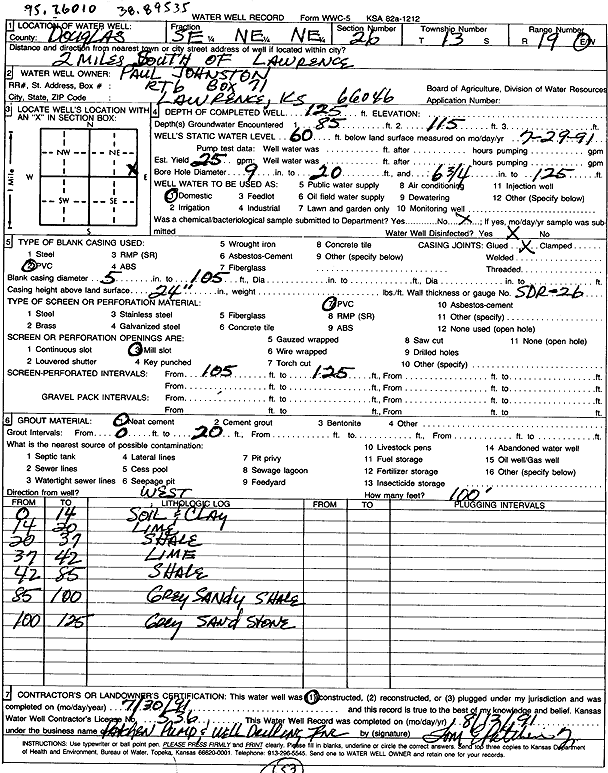 95.26010 38.89535
WATER WELL RECORD Form WWC-5 KSA 82a-1212
1 LOCATION OF WATER WELL: Fraction Section Number Township Number Range Number
County: DOUGLAS SE ¼ NE ¼ NE ¼ 26 T 13 S R 19 E/W
Distance and direction from nearest town or city street address of well if located within city?
2 MILES SOUTH OF LAWRENCE
2 WATER WELL OWNER: PAUL JOHNSTON
RR#, St. Address, Box # : RT6 BOX 71 Board of Agriculture, Division of Water Resources
City, State, ZIP Code : LAWRENCE, KS 66046 Application Number:
3 LOCATE WELL'S LOCATION WITH AN "X" IN SECTION BOX:
N
NW NE
W E
X
SW SE
S
1 Mile
4 DEPTH OF COMPLETED WELL 125 ft. ELEVATION:
Depth(s) Groundwater Encountered 1. 85 ft. 2. 115 ft. 3. ft.
WELL'S STATIC WATER LEVEL 60 ft. below land surface measured on mo/day/yr 7-29-91
Pump test data: Well water was ft. after hours pumping gpm
Est. Yield 25 gpm: Well water was ft. after hours pumping gpm
Bore Hole Diameter 9 in. to 20 ft., and 6 3/4 in. to 125 ft.
WELL WATER TO BE USED AS: 5 Public water supply 8 Air conditioning 11 Injection well
1 Domestic 3 Feedlot 6 Oil field water supply 9 Dewatering 12 Other (Specify below)
2 Irrigation 4 Industrial 7 Lawn and garden only 10 Monitoring well
Was a chemical/bacteriological sample submitted to Department? Yes No X; If yes, mo/day/yr sample was submitted
Water Well Disinfected? Yes X No
5 TYPE OF BLANK CASING USED: 5 Wrought iron 8 Concrete tile CASING JOINTS: Glued X Clamped
1 Steel 3 RMP (SR) 6 Asbestos-Cement 9 Other (specify below) Welded
2 PVC 4 ABS 7 Fiberglass Threaded
Blank casing diameter 5 in. to 105 ft., Dia in. to ft., Dia in. to ft.
Casing height above land surface 24" in., weight lbs./ft. Wall thickness or gauge No. SDR-26
TYPE OF SCREEN OR PERFORATION MATERIAL: 7 PVC 10 Asbestos-cement
1 Steel 3 Stainless steel 5 Fiberglass 8 RMP (SR) 11 Other (specify)
2 Brass 4 Galvanized steel 6 Concrete tile 9 ABS 12 None used (open hole)
SCREEN OR PERFORATION OPENINGS ARE: 5 Gauzed wrapped 8 Saw cut 11 None (open hole)
1 Continuous slot 3 Mill slot 6 Wire wrapped 9 Drilled holes
2 Louvered shutter 4 Key punched 7 Torch cut 10 Other (specify)
SCREEN-PERFORATED INTERVALS: From 105 ft. to 125 ft., From ft. to ft.
From ft. to ft., From ft. to ft.
GRAVEL PACK INTERVALS: From ft. to ft., From ft. to ft.
From ft. to ft., From ft. to ft.
6 GROUT MATERIAL: 1 Neat cement 2 Cement grout 3 Bentonite 4 Other
Grout Intervals: From 0 ft. to 20 ft., From ft. to ft., From ft. to ft.
What is the nearest source of possible contamination: 10 Livestock pens 14 Abandoned water well
1 Septic tank 4 Lateral lines 7 Pit privy 11 Fuel storage 15 Oil well/Gas well
2 Sewer lines 5 Cess pool 8 Sewage lagoon 12 Fertilizer storage 16 Other (specify below)
3 Watertight sewer lines 6 Seepage pit 9 Feedyard 13 Insecticide storage
Direction from well? WEST How many feet? 100'
FROM TO LITHOLOGIC LOG FROM TO PLUGGING INTERVALS
0 14 SOIL & CLAY
14 20 LIME
20 37 SHALE
37 42 LIME
42 85 SHALE
85 100 GREY SANDY SHALE
100 125 GREY SAND STONE
7 CONTRACTOR'S OR LANDOWNER'S CERTIFICATION: This water well was (1) constructed, (2) reconstructed, or (3) plugged under my jurisdiction and was
completed on (mo/day/year) 7/30/91 and this record is true to the best of my knowledge and belief. Kansas
Water Well Contractor's License No. 536 This Water Well Record was completed on (mo/day/yr) 8/13/91
under the business name of Pump & Well Drilling Inc by (signature)
INSTRUCTIONS: Use typewriter or ball point pen. PLEASE PRESS FIRMLY and PRINT clearly. Please fill in blanks, underline or circle the correct answers. Send top three copies to Kansas Department
of Health and Environment, Bureau of Water, Topeka, Kansas 66620-0001. Telephone: 913-296-5545. Send one to WATER WELL OWNER and retain one for your records.